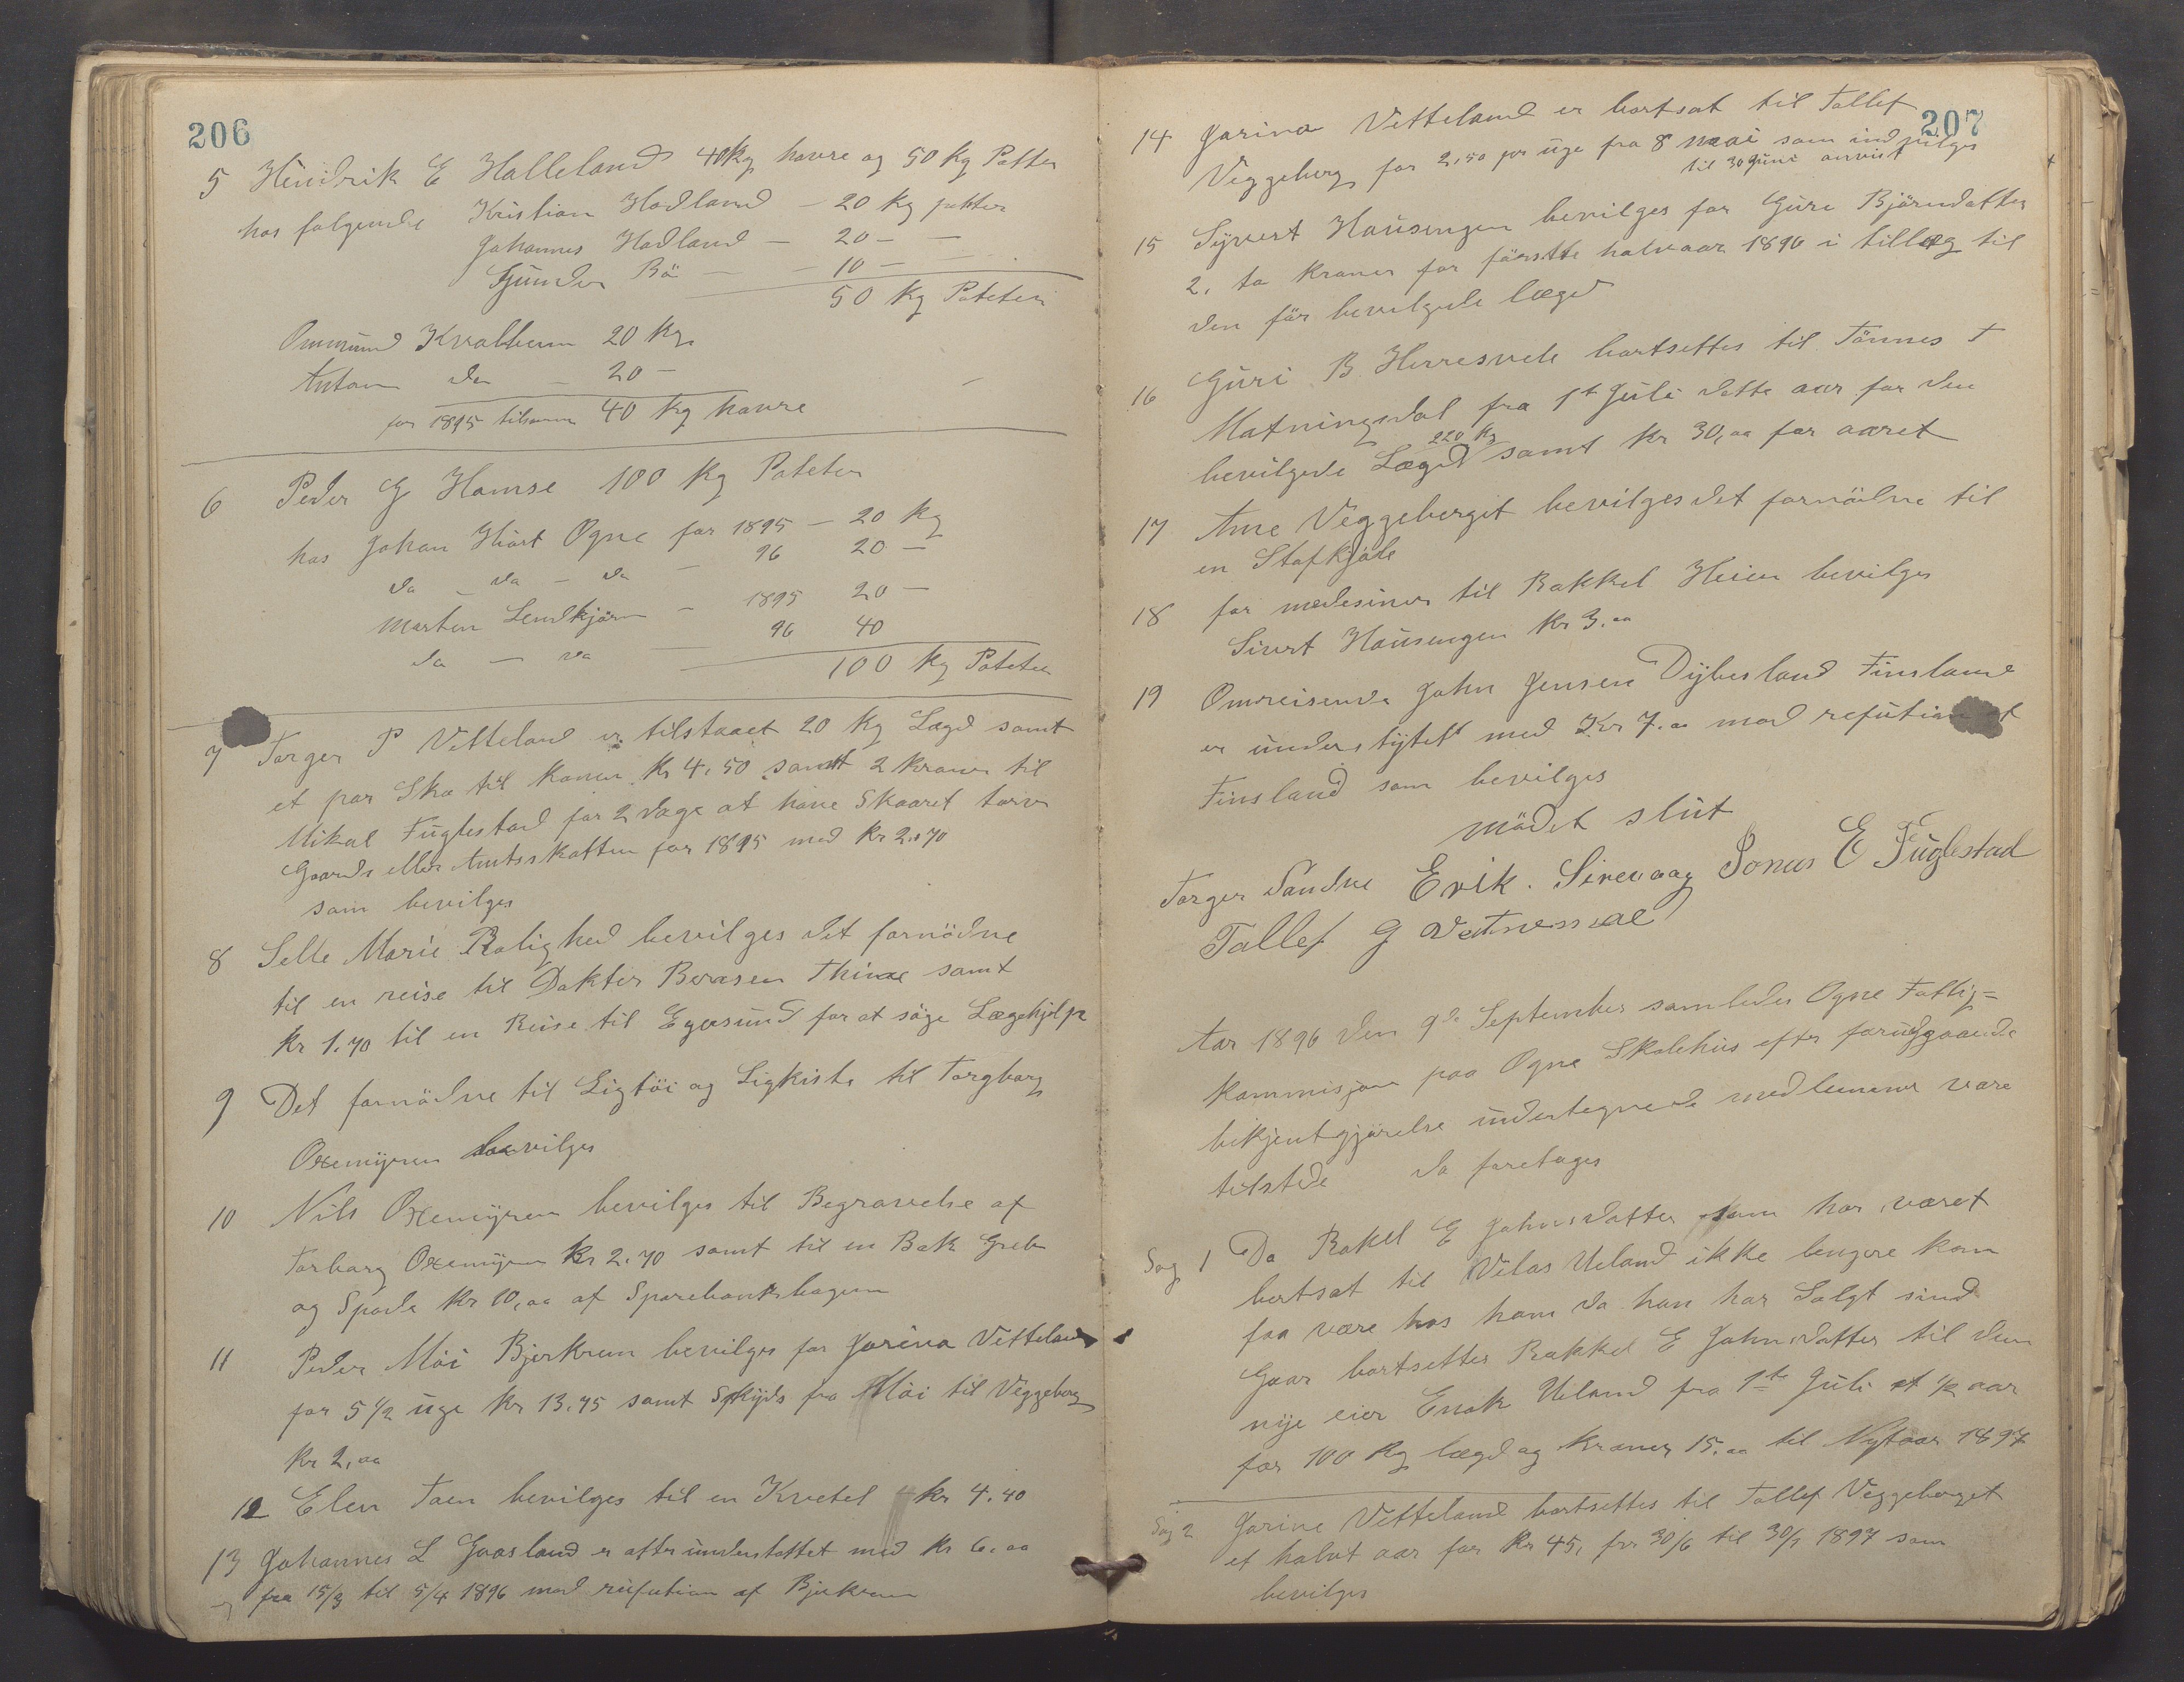 206
5 Hendrik E Halleland 40 kg havre og 50 kg Potter
hos følgende Kristian Hadland – 20 kg potter
Johannes Hadland – 20 – –
Gunder Bö – – 10 –
50 kg Poteter
Ommund Kvalbein 20 kg
Antom do – 20 –
for 1895 tilsamm 40 kg havre
6 Peder G Hamse 100 kg Poteter
hos Johan Hiört Ogne for 1895 – 20 kg
da – da – da – 96 20 –
Morten Lendkjörn – 1895 20 –
da – da 96 40
100 kg Poteter
7 Torger P Vetteland er tilstaaet 20 kg Lægd samt
et par Sko til konen Kr 4,50 samt 2 kroner til
Mikal Fuglestad for 2 dage at have Skaaret torv
Gaards eller Amtsskatten for 1895 med Kr 2,70
som bevilges
8 Selle Marie Rolighed bevilges det fornödne
til en reise til Dokter Bernsen Thime samt
Kr 1,70 til en Reise til Egersund for at söge Lægehjelp
9 Det fornödne til Ligtöi og Ligkiste til Torgborg
Oxemyren bevilges
10 Nils Oxemyren bevilges til Begravelse af
Torborg Oxemyren Kr 2,70 samt til en Bak Greb
og Spade Kr 10,00 af Sparebankbogen
11 Peder Möi Bjerkrem bevilges for Jorina Vetteland
for 5 1/2 uge Kr 13,75 samt Skyds fra Möi til Veggeberg
Kr 2,00
12 Elen Taen bevilges til en Kvetel kr 4,40
13 Johannes L Gaasland er after understöttet med Kr 6,00
og fra 15/3 til 5/4 1896 mod refution af Bjerkrem
207
14 Jorina Vetteland er bortsat til Tollef
Veggeberg for 2,50 per uge fra 8 maai som indvilges
til 30 Juni anvist
15 Syvert Hausengen bevilges for Guri Björndatter
2, to kroner for förstte halvaar 1896 i tillæg til
den för bevilgede lægd
16 Guri B. Herresvele bortsettes til Tönnes T
Matningsdal fra 1te Juli dette aar for den
bevilgede Lægd 220 kg samt Kr 30,00 for aaret
17 Ane Veggeberget bevilges det fornödne til
en Stofkjole
18 for medesiner til Rakkel Heien bevilges
Sivert Hausengen Kr 3.00
19 Omreisende John Jensen Dybesland Finsland
er understytet med Kr 7.00 mod refution af
Finsland som bevilges
mödet slut
Torger Sandve Erik. Sirevaag Jonas E Fuglestad
Tollef G Vatnemoe
Aar 1896 den 9de September samledes Ogne Fattig=
kommisjon paa Ogne Skolehus efter forudgaaende
bekjentgjörelse undertegnede medlemmer vare
tilstede da foretages
Sag 1 Da Rakel E Johnsdatter som har været
bortsat til Vilas Ueland ikke lengere kan
faa være hos ham da han har Salgt sind
Gaar bortsettes Rakkel E Johnsdatter til den
nye eier Enok Ueland fra 1te Juli et 1/2 aar
for 100 Kg lægd og kroner 15.00 til Nytaar 1897
Sag 2 Jorine Vetteland bortsettes til Tollef Veggeberget
et halvt aar for Kr 45, fra 30/6 til 30/1 1897 som
bevilges